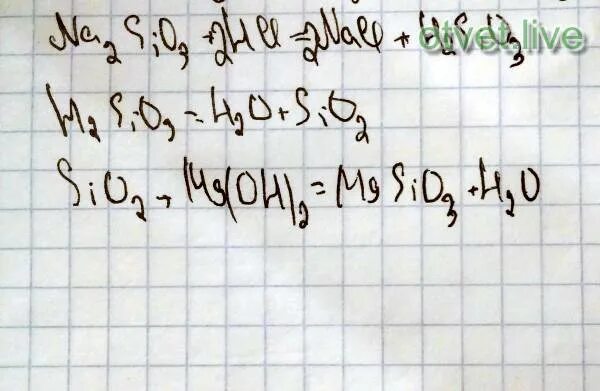 Na₂SiO₃ + 2HCl = 2NaCl + H₂SiO₃
otvet.live
H₂SiO₃ = H₂O + SiO₂
SiO₂ + Mg(OH)₂ = MgSiO₃ + H₂O